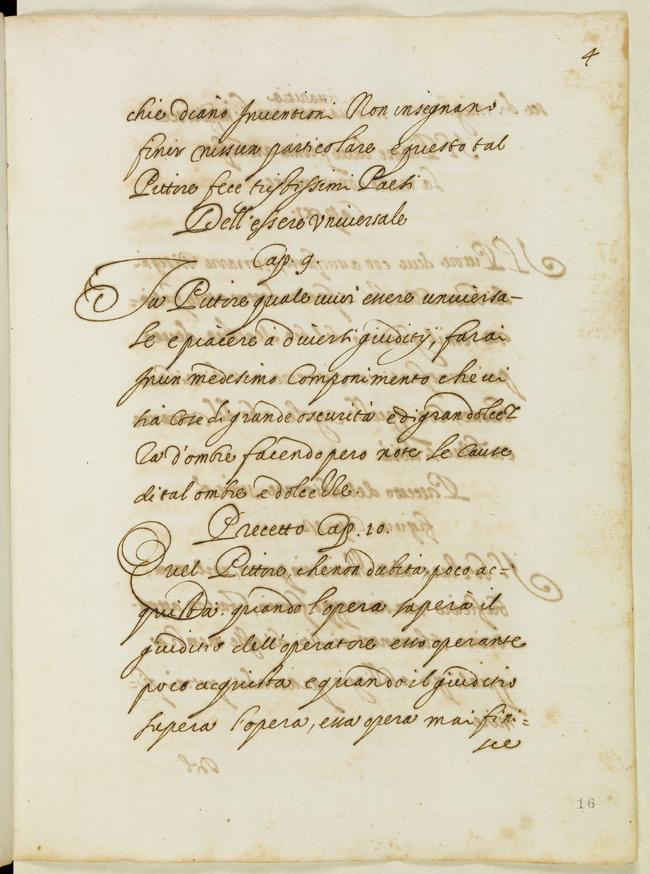 4
chie diano Inventioni Non insegnano
finir nissun particolare e questo tal
Pittore fece tristissimi Paesi
Dell'essere Vniversale
Cap. 9.
Tu Pittore quale vuoi essere universa-
le e piacere à diversi giuditij, farai
Inun medesimo Componimento che vi
sia Cose di grande oscurità e di gran dolcez
za d'ombre facendo però note le Cause
di tal ombre e dolcezze.
Precetto Cap. 10.
Quel Pittore che non dubita poco ac=
quista. quando l'opera supera il
giuditio dell'operatore esso operante
poco acquista e quando il giuditio
supera l'opera, essa opera mai fini=
sce
16